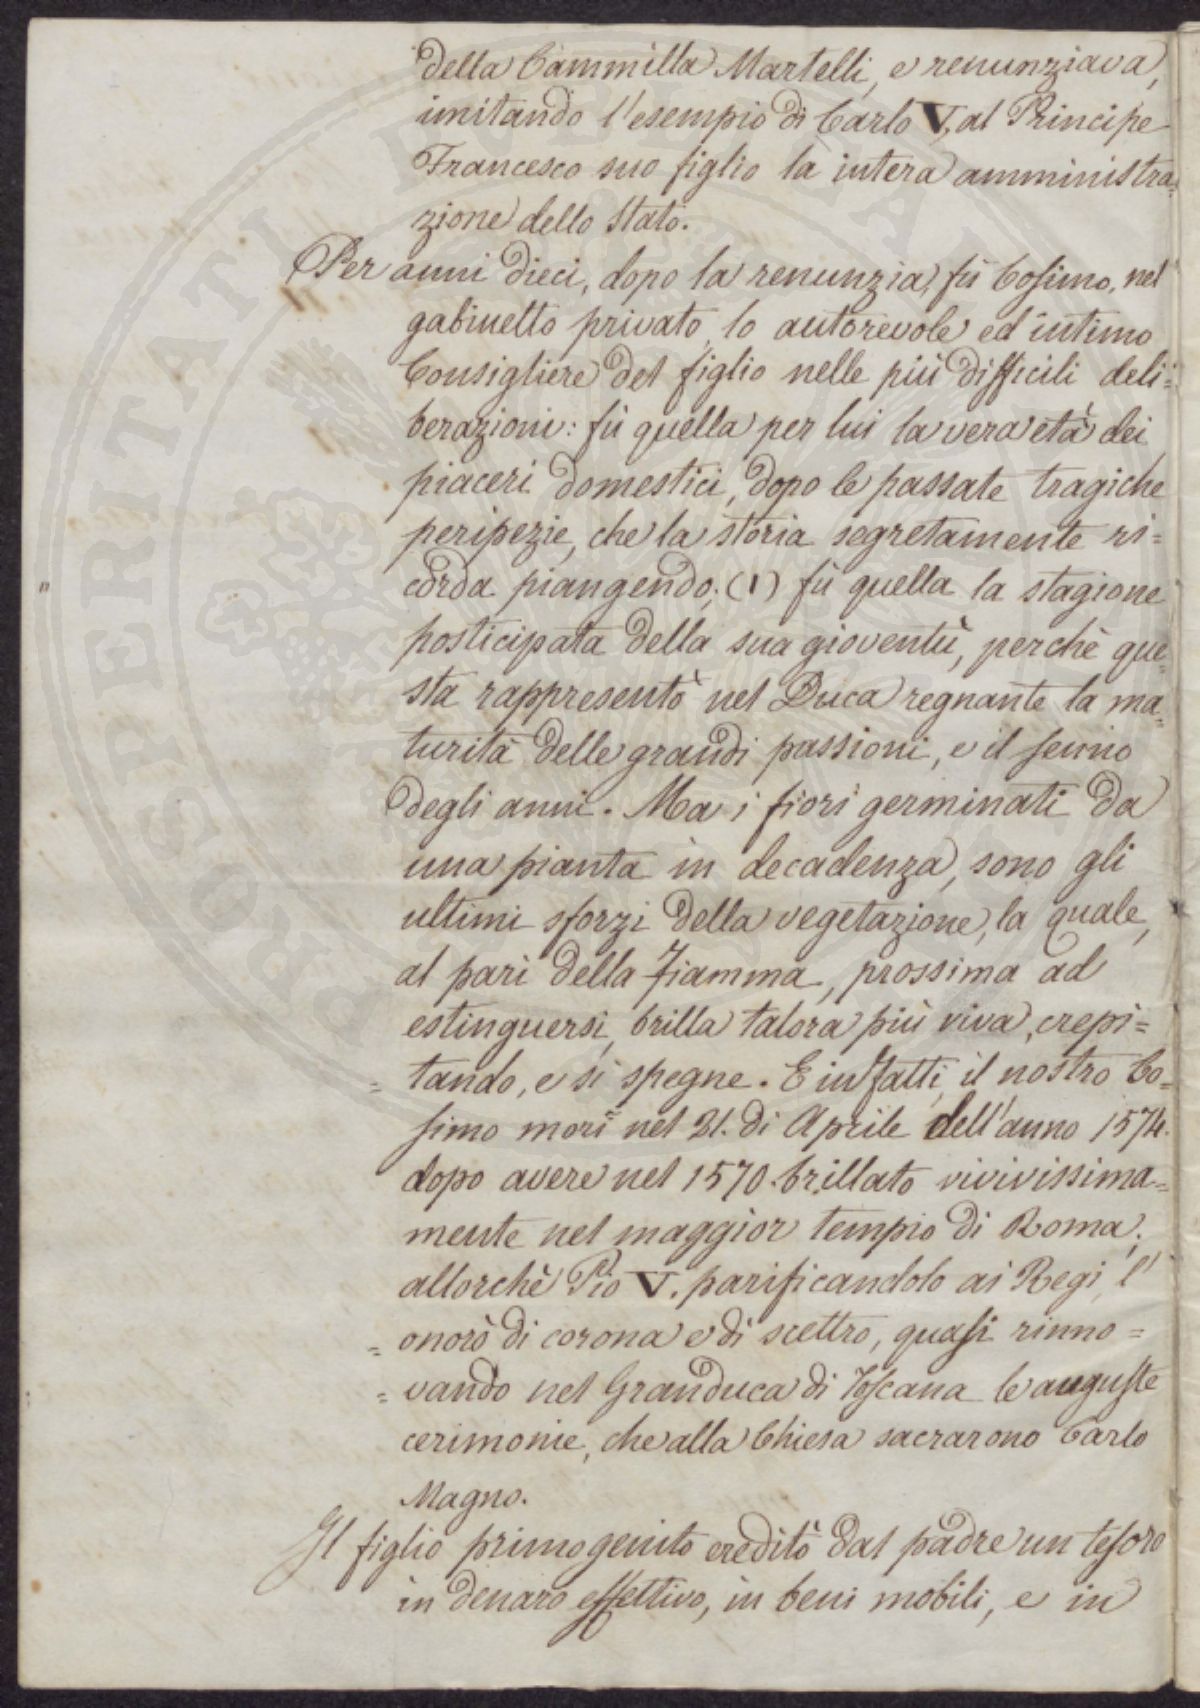 della Cammilla Martelli, e renunziava,
imitando l'esempio di Carlo V. al Principe
Francesco suo figlio la intera amministra=
zione dello Stato.
Per anni dieci, dopo la renunzia, fù Cosimo, nel
gabinetto privato, lo autorevole ed intimo
Consigliere del figlio nelle più difficili deli=
berazioni: fù quella per lui la vera età dei
piaceri domestici, dopo le passate tragiche
peripezie, che la storia segretamente ri=
corda piangendo; (1) fù quella la stagione
posticipata della sua gioventù, perchè que=
sta rappresentò nel Duca regnante la ma=
turità delle grandi passioni, e il senno
degli anni. Ma i fiori germinati da
una pianta in decadenza, sono gli
ultimi sforzi della vegetazione, la quale,
al pari della fiamma, prossima ad
estinguersi, brilla talora più viva, crepi=
= tando, e si spegne. E in fatti, il nostro Co=
simo morì nel 21. di Aprile dell'anno 1574.
dopo avere nel 1570. brillato vivivissima=
mente nel maggior tempio di Roma;
allorchè Pio V. parificandolo ai Regi, l'
= onorò di corona e di scettro, quasi rinno=
= vando nel Granduca di Toscana le auguste
cerimonie, che alla Chiesa sacrarono Carlo
Magno.
Il figlio primogenito ereditò dal padre un tesoro
in denaro effettivo, in beni mobili, e in
PROSPERITATI PUBLICAE